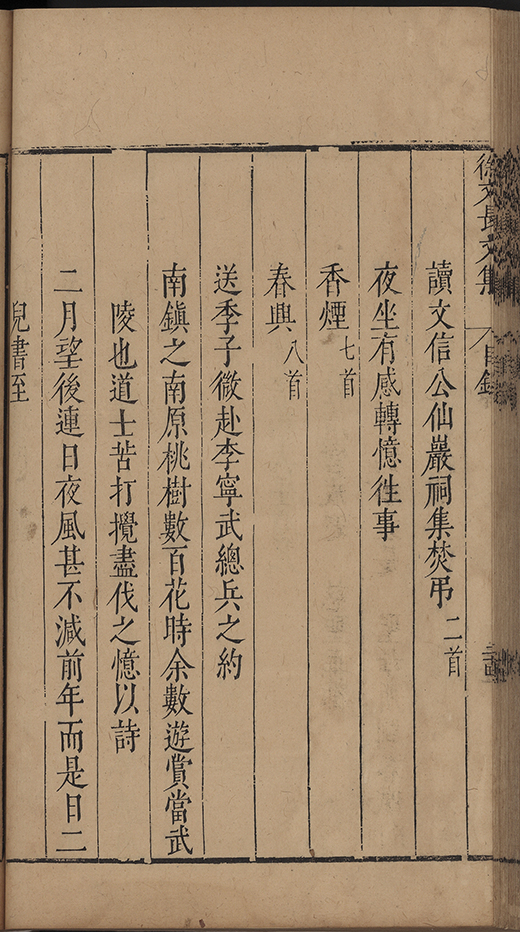 徐文長文集 目錄
讀文信公仙巖祠集焚弔 二首
夜坐有感轉憶往事
香煙 七首
春興 八首
送季子微赴李寧武總兵之約
南鎮之南原桃樹數百花時余數遊賞當武
陵也道士苦打攪盡伐之憶以詩
二月望後連日夜風甚不減前年而是日二
兒書至